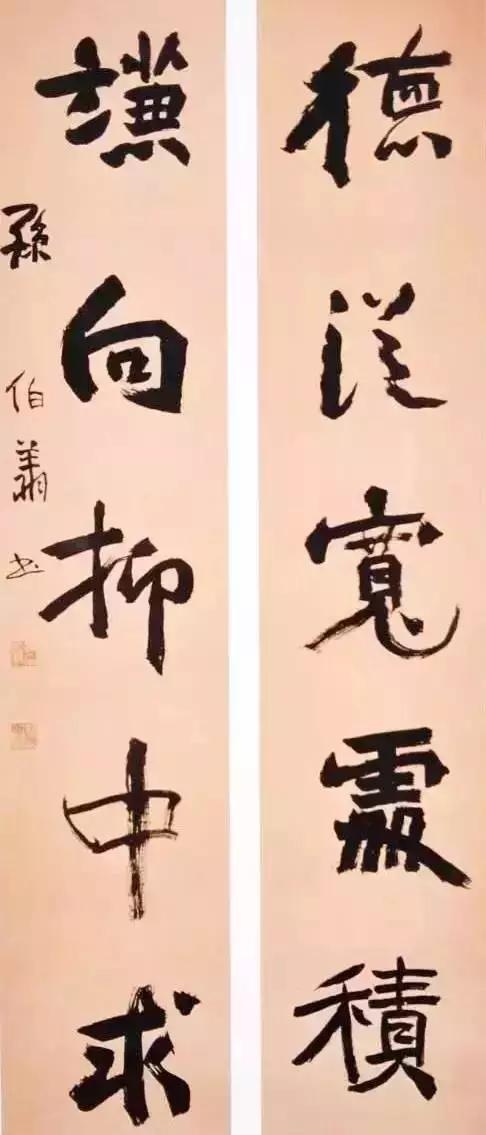 德從寬處積
謙向抑中求
孫伯翔书